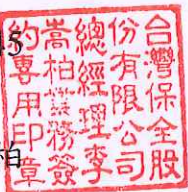 台灣保全股
份有限公司
總經理李
嵩柏業務簽
約專用印章
5
柏